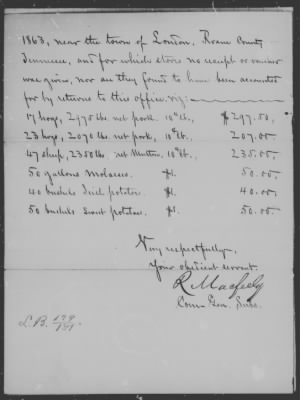 1863, near the town of Loudon, Roane County
Tennessee, and for which stores no receipt or voucher
was given, nor are they found to have been accounted
for by returns to this office. viz:
17 hogs, 2975 lbs. net pork. 10¢ lb., $297.50.
23 hogs, 2070 lbs. net pork, 10¢ lb. 207.00.
47 sheep, 2350 lbs. net Mutton. 10¢ lb. 235.00.
50 gallons Molasses. $1. 50.00.
40 bushels Irish potatoes. $1. 40.00.
50 bushels Sweet potatoes. $1. 50.00.
Very respectfully,
Your obedient servant
R Macfeely
Com. Gen. Subs.
L.B. 179/181